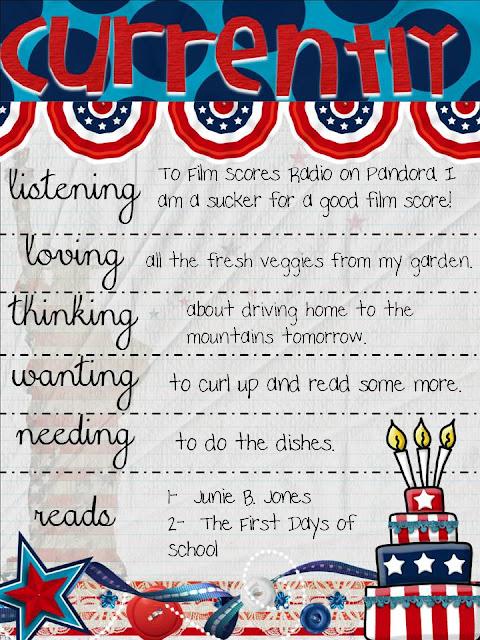 currently
listening
To Film Scores Radio on Pandora. I
am a sucker for a good film score!
loving
all the fresh veggies from my garden.
thinking
about driving home to the
mountains tomorrow.
wanting
to curl up and read some more.
needing
to do the dishes.
reads
1- Junie B. Jones
2- The First Days of
school